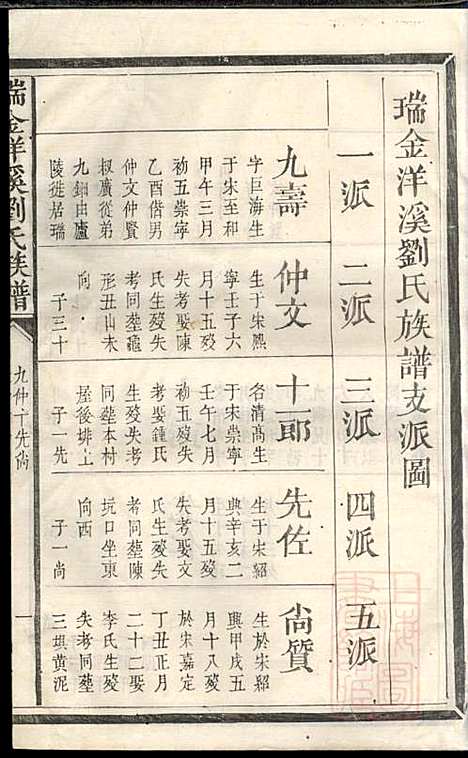 瑞金洋溪劉氏族譜支派圖
一派
二派
三派
四派
五派
九壽
字巨海生
于宋至和
甲午三月
初五崇寧
乙酉偕男
仲文仲賢
叔廣從弟
九錭由廬
陵徙居瑞
仲文
生于宋熙
寧壬子六
月十五殁
失考娶陳
氏生殁失
考同塟龜
形丑山未
向
子三十
十一郎
名清高生
于宋崇寧
壬午七月
初五殁失
考娶鍾氏
生殁失考
同塟本村
屋後排上
子一先
先佐
生于宋紹
興辛亥二
月十五殁
失考娶文
氏生殁失
考同塟陳
坑口坐東
向西
子一尚
尚質
生於宋紹
興甲戌五
月十八殁
於宋嘉定
丁丑正月
二十二娶
李氏生殁
失考同塟
三垻黄泥
瑞金洋溪劉氏族譜
九仲十先尚
一